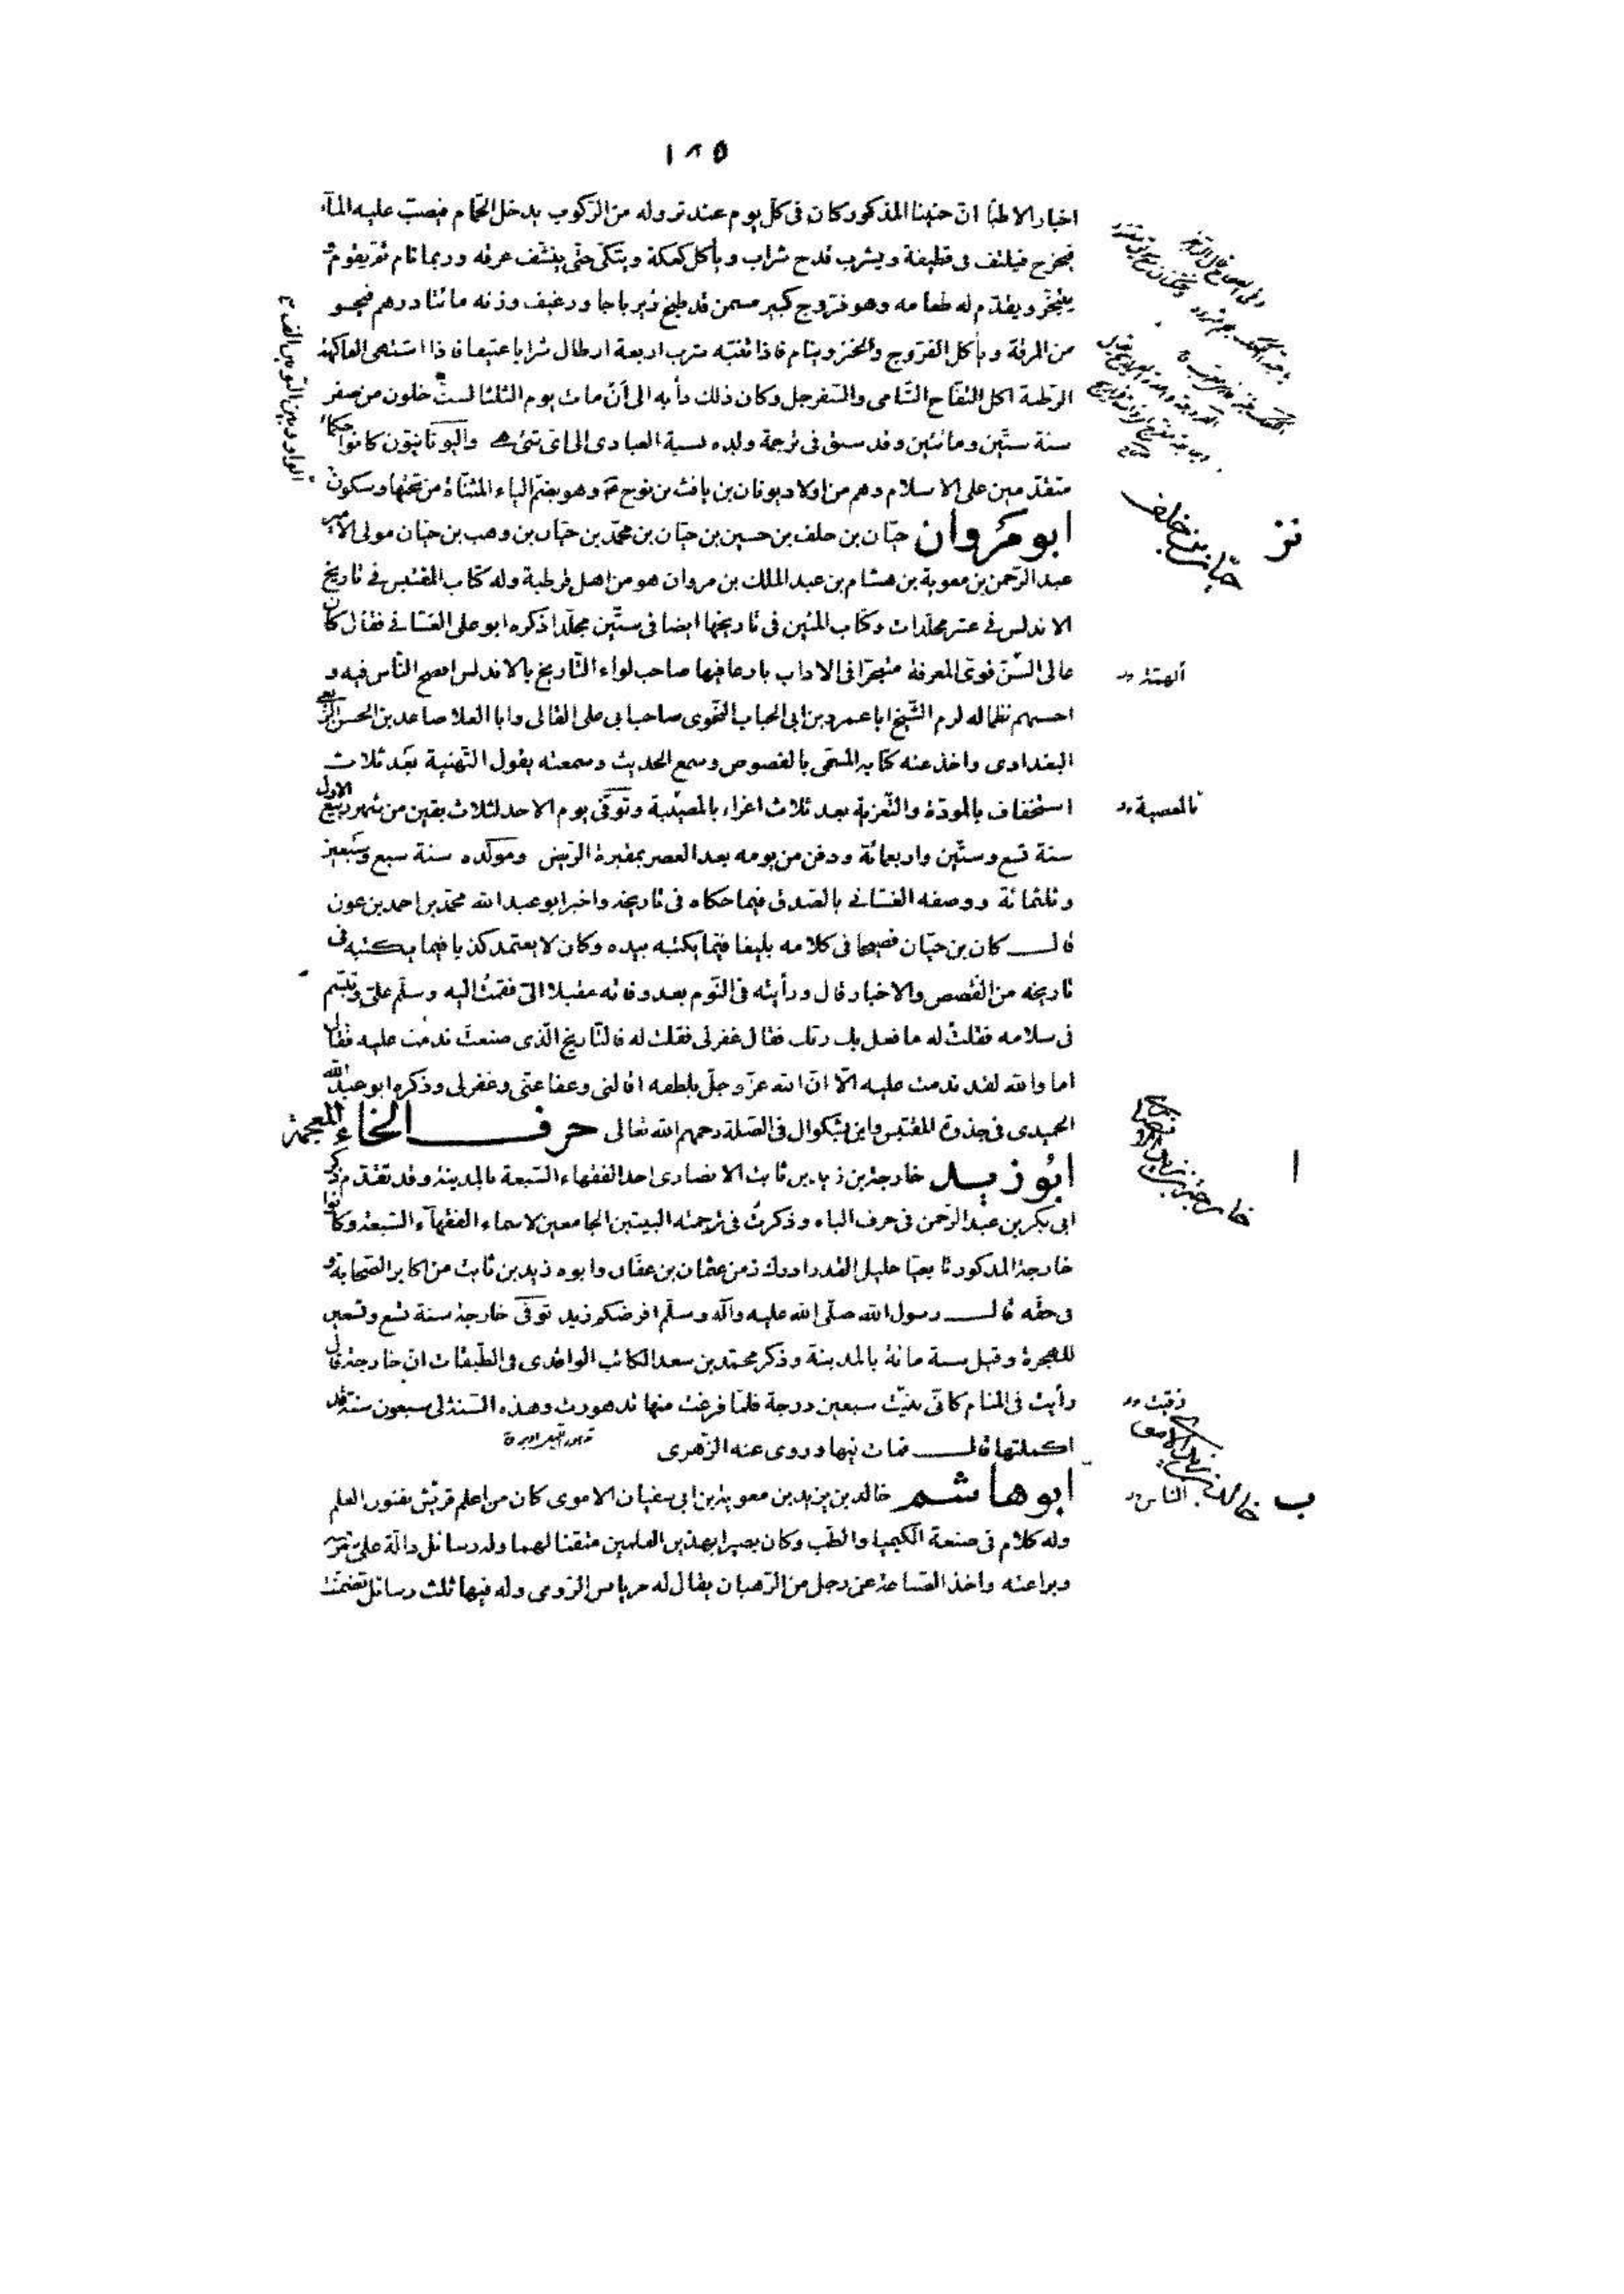 ١٨٥
اخبار الاطبّا انّ حنينا المذكور كان فى كلّ يوم عند نزوله من الرّكوب يدخل الحمّام فيصبّ عليه المآء
فيخرج فيلتف فى قطيفة ويشرب قدح شراب ويأكل كعكة ويتكّى حتّى ينشّف عرقه وربما نام ثمّ يقوم
يتبخّر ويقدّم له طعامه وهو فرّوج كبير مسمن قد طبخ زيرباجا ورغيف وزنه مائتا درهم فيحسو
من المرقة ويأكل الفرّوج والخبز وينام فاذا انتبه شرب اربعة ارطال شرابا عتيقا فاذا اشتهى الفاكهة
الرّطبة اكل التفّاح الشّامى والسّفرجل وكان ذلك دأبه الى أنْ مات يوم الثلثا لستّ خلون من صفر
سنة ستّين ومائتين وقد سبق فى ترجمة ولده نسبة العبادى الى اىّ شئ هى واليونانيّون كانوا حكماء
متقدّمين على الاسلام وهم من اولاد يونان بن يافث بن نوح وهو بضمّ الياء المثنّاة من تحتها وسكون
الواو وبين النّونين الف
ابو مَروان حيّان بن خلف بن حسين بن حيّان بن محمّد بن حيّان بن وهب بن حيّان مولى الامير
حيّان بن خلف
عبد الرّحمن بن معوية بن هشام بن عبد الملك بن مروان هو من اهل قرطبة وله كتاب المقتبس فى تاريخ
الاندلس فى عشر مجلّدات وكتاب المتين فى تاريخها ايضا فى ستّين مجلّدا ذكره ابو على الغسّانى فقال كان
عالى السّنّ قوىّ المعرفة متبحّرا فى الاداب بارعا فيها صاحب لواء التّاريخ بالاندلس افصح النّاس فيه و
احسنهم نظما له لزم الشّيخ ابا عمرو بن ابى الحباب النّحوى صاحب ابى على القالى وابا العلا صاعد بن الحسن الرّبعى
البغدادى واخذ عنه كتابه المسمّى بالفصوص وسمع الحديث وسمعته يقول التّهنية بَعْد ثلاث
استخفاف بالمودّة والتّعزية بعد ثلاث اغراء بالمصيبة وتوفّى يوم الاحد لثلاث بقين من شهر ربيع الاول
بالمصيبة
سنة تسع وستّين واربعمائة ودفن من يومه بعد العصر بمقبرة الرّبض ومولده سنة سبع وسَبعين
وثلثمائة ووصفه الغسّانى بالصّدق فيما حكاه فى تاريخه واخبر ابو عبد الله محمّد بن احمد بن عون
قال كان بن حيّان فصيحا فى كلامه بليغا فيما يكتبه بيده وكان لا يعتمد كذبا فيما يكتبه فى
تاريخه من القصص والاخبار قال ورأيته فى النّوم بعد وفاته مقبلا الىّ فقمتُ اليه وسلّم علىّ وتبسّم
فى سلامه فقلتُ له ما فعل بك ربّك فقال غفر لى فقلت له فالتّاريخ الّذى صنعتَ ندمْتَ عليه فقال
اما والله لقد ندمت عليه الّا انّ الله عزّ وجلّ بلطفه اقالنى وعفا عنّى وغفر لى وذكره ابو عبد الله
الحميدى فى جذوة المقتبس وابن بشكوال فى الصّلة رحمهم الله تعالى حرف الخاء المعجمة
ابُو زيد خارجة بن زيد بن ثابت الانصارى احد الفقهاء السّبعة بالمدينة وقد تقدّم ذكر
ا
ابى بكر بن عبد الرّحمن فى حرف الباء وذكرتُ فى ترجمته البيتين الجامعين لاسماء الفقهآء السّبعة وكانوا
خارجة المذكور تابعيّا جليل القدر ادرك زمن عثمان بن عفّان وابوه زيد بن ثابت من اكابر الصّحابة و
فى حقّه قال رسول الله صلّى الله عليه وآله وسلّم افرضكم زيد توفّى خارجة سنة تسع وتسعين
للهجرة وقيل سنة مائة بالمدينة وذكر محمّد بن سعد الكاتب الواقدى فى الطّبقات انّ خارجة قال
رأيت فى المنام كانّى بنيْتُ سبعين درجة فلمّا فرغت منها تدهورت وهذه السّنة لى سبعون سنة قد
اكملتها قال فمات فيها وروى عنه الزّهرى
ابو هاشم خالد بن يزيد بن معوية بن ابى سفيان الاموى كان من اعلم قريش بفنون العلم
ب
وله كلام فى صنعة الكيميا والطّب وكان بصيرا بهذين العلمين متقنا لهما وله رسائل دالّة على معرفته
وبراعته واخذ الصّناعة عن رجل من الرّهبان يقال له مريانس الرّومى وله فيها ثلث رسائل تضمّنت